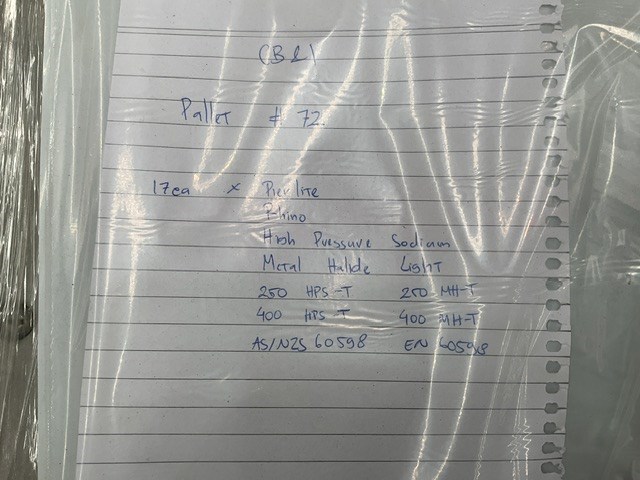 (B1)
Pallet # 72.
17ea x Pierlite
Rhino
High Pressure Sodium
Metal Halide Light
250 HPS-T 250 MH-T
400 HPS-T 400 MH-T
AS/NZS 60598 EN 60598